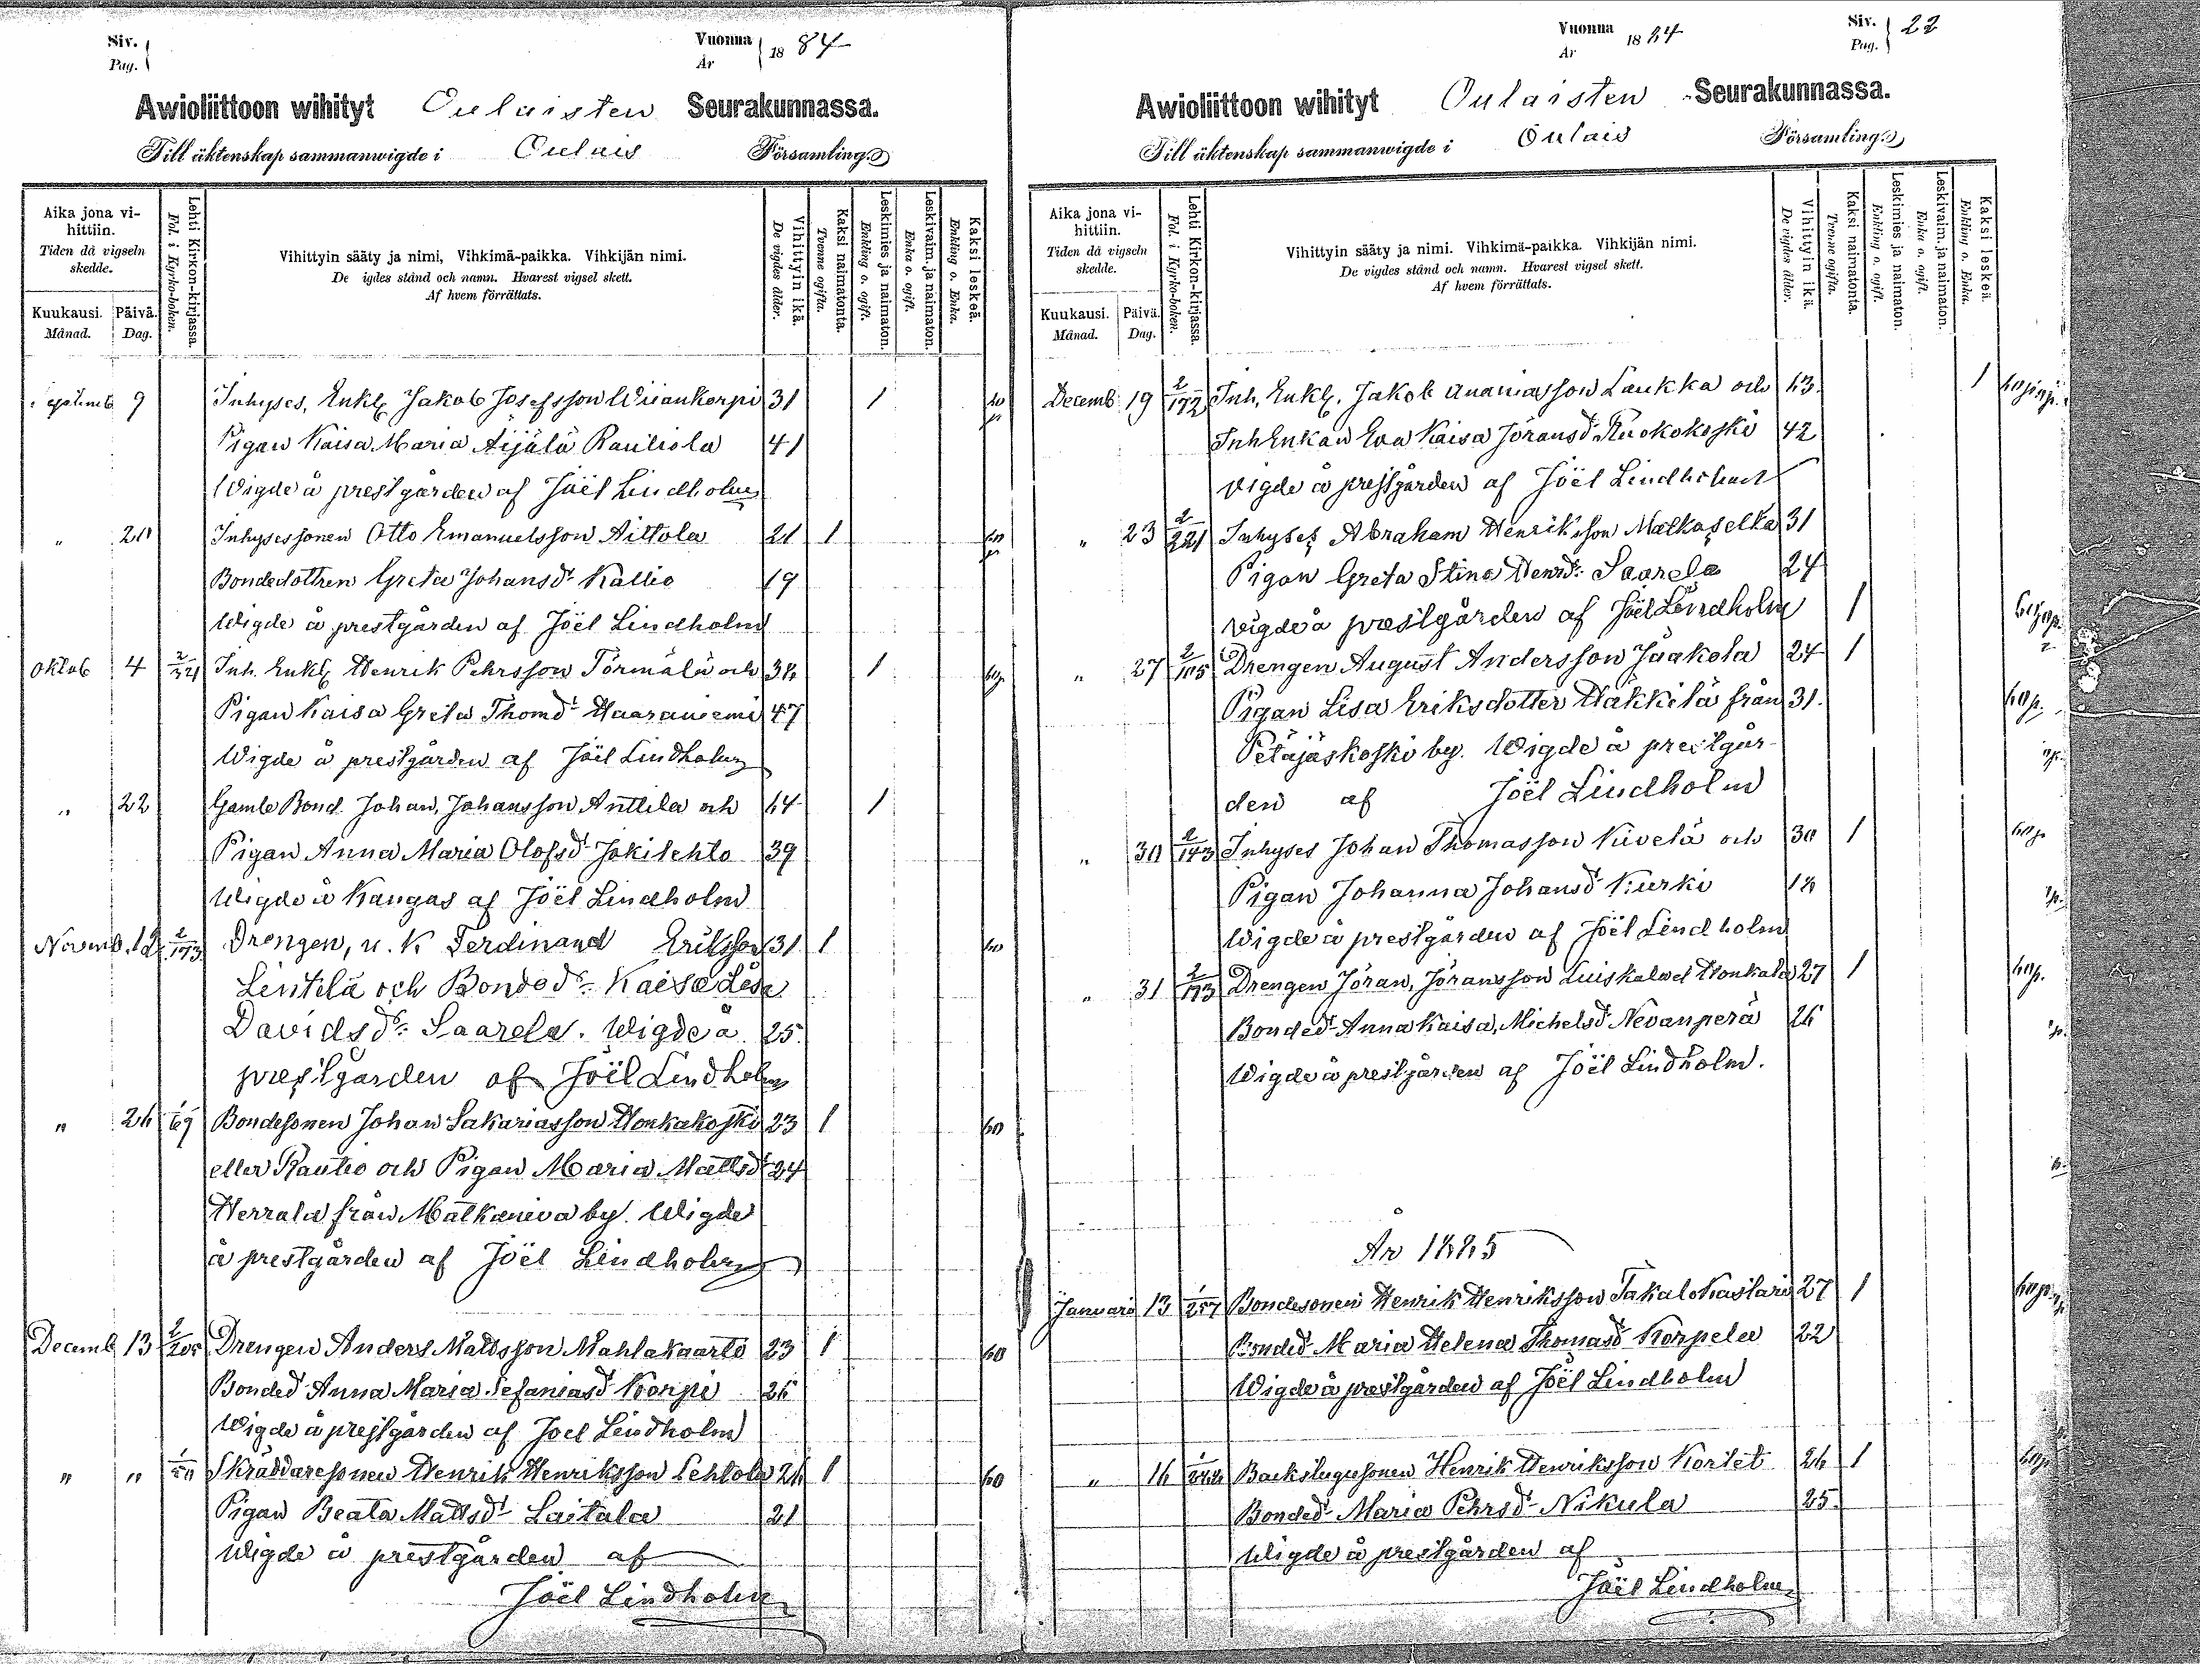 Siv.
Pag.
Vuonna
År
1884
Awioliittoon wihityt Oulaisten Seurakunnassa.
Till äktenskap sammanwigde i Oulais Församling.
Aika jona vihittiin.
Tiden då vigseln skedde.
Kuukausi.
Månad.
Päivä.
Dag.
Lehti Kirkon-kirjassa.
Fol. i Kyrko-boken.
Vihittyin sääty ja nimi, Vihkimä-paikka. Vihkijän nimi.
De igdes stånd och namn. Hvarest vigsel skett.
Af hvem förrättats.
Vihittyin ikä.
De vigdes ålder.
Kaksi naimatonta.
Tvenne ogifta.
Leskimies ja naimaton.
Enkling o. ogift.
Leskivaim. ja naimaton.
Enka o. ogift.
Kaksi leskeä.
Enkling o. Enka.
9 Inhyses, Enkl. Jakob Josefsson Wiiankorpi 31 1
Pigan Kaisa Maria Äijälä Rautiola 41
Wigde å prestgården af Joël Lindholm
" 20 Inhysessonen Otto Emanuelsson Aittola 21 1
Bondedottren Greta Johansd. Kallio 19
Wigde å prestgården af Joël Lindholm
Oktob 4 Inh. Enkl. Henrik Pehrsson Törmälä och 38 1
Pigan Kaisa Greta Thomd. Haaraniemi 47
Wigde å prestgården af Joël Lindholm
" 22 Gamle Bond. Johan Johansson Anttila och 64 1
Pigan Anna Maria Olofsd. Jokilehto 39
Wigde å Kangas af Joël Lindholm
Novemb. 12 2/193 Drengen, u. k. Ferdinand Eriksson 31 1
Lintilä och Bonded. Kaisa Lisa
Davidsd. Saarela. Wigde å 25
prestgården af Joël Lindholm
" 26 1/69 Bondesonen Johan Sakariasson Honkakoski 23 1 60
eller Rautio och Pigan Maria Mattsd. 24
Herrala från Matkaneva by. Wigde
å prestgården af Joël Lindholm
Decemb 13 Drengen Anders Mattsson Mahlakaarto 23 1 60
Bonded. Anna Maria Sefaniasd. Korpi 26
Wigde å prestgården af Joel Lindholm
" " Skräddaresonen Henrik Henriksson Lehtola 26 1 60
Pigan Beata Mattsd. Laitala 21
Wigde å prestgården af
Joël Lindholm
Vuonna
År
1884
Siv.
Pag.
22
Awioliittoon wihityt Oulaisten Seurakunnassa.
Till äktenskap sammanwigde i Oulais Församling.
Aika jona vihittiin.
Tiden då vigseln skedde.
Kuukausi.
Månad.
Päivä.
Dag.
Lehti Kirkon-kirjassa.
Fol. i Kyrko-boken.
Vihittyin sääty ja nimi. Vihkimä-paikka. Vihkijän nimi.
De vigdes stånd och namn. Hvarest vigsel skett.
Af hvem förrättats.
Vihittyin ikä.
De vigdes ålder.
Kaksi naimatonta.
Tvenne ogifta.
Leskimies ja naimaton.
Enkling o. ogift.
Leskivaim. ja naimaton.
Enka o. ogift.
Kaksi leskeä.
Enkling o. Enka.
Decemb 19 2/172 Inh, Enkl. Jakob Ananiasson Laukka och 63 1
Inh Enkan Eva Kaisa Jöransd. Ruokokoski 42
vigde å prestgården af Joël Lindholm
" 23 2/221 Inhyses Abraham Henriksson Matkaselkä 31
Pigan Greta Stina Henrd. Saarela 24
vigde å prestgården af Joël Lindholm 1
" 27 2/105 Drengen August Andersson Jaakola 24 1
Pigan Lisa Eriksdotter Häkkilä från 31.
Petäjäskoski by. Wigde å prestgår-
den af Joël Lindholm
" 30 2/143 Inhyses Johan Thomasson Kivelä och 30 1
Pigan Johanna Johansd. Kurki 18
Wigde å prestgården af Joël Lindholm
" 31 2/193 Drengen Jöran Jöransson Luiskala Honkala 27 1
Bonded. Anna Kaisa Michelsd. Nevanperä 26
Wigde å prestgården af Joël Lindholm.
År 1885
Januari 13 1/257 Bondesonen Henrik Henriksson Takalo Kastari 27 1
Bonded. Maria Helena Thomasd. Korpela 22
Wigde å prestgården af Joël Lindholm
" 16 Backstugusonen Henrik Henriksson Kortet 26 1
Bonded. Maria Pehrsd. Nikula 25
Wigde å prestgården af
Joël Lindholm